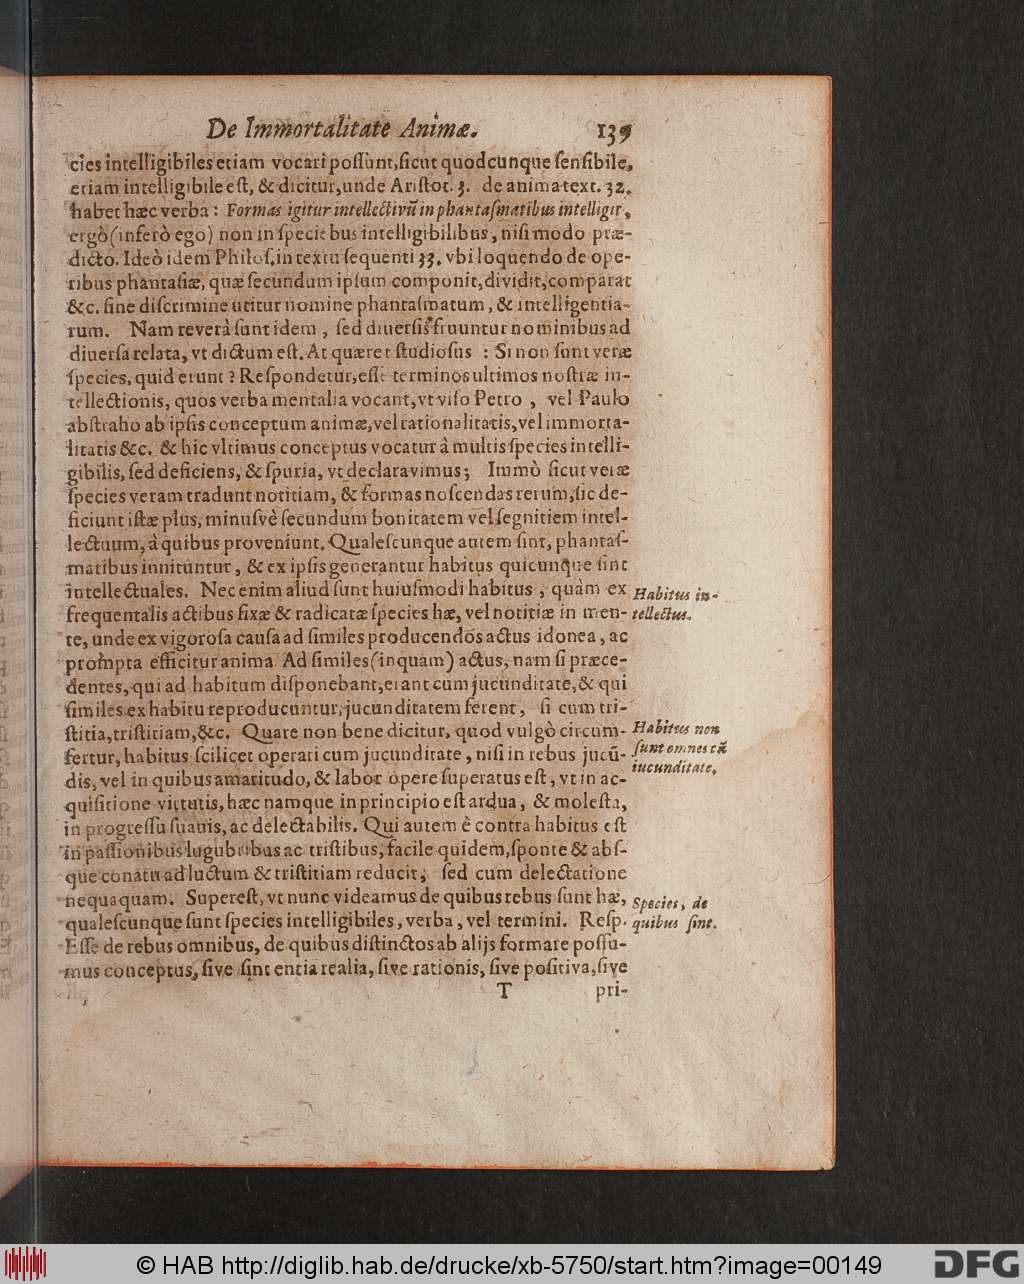 De Immortalitate Animæ. 139
cies intelligibiles etiam vocari poſſunt, ſicut quodcunque ſenſibile,
etiam intelligibile eſt, & dicitur, unde Ariſtot. 3. de anima text. 32.
habet hæc verba: Formas igitur intellectivũ in phantaſmatibus intelligit,
ergò (inferò ego) non in ſpeciebus intelligibilibus, niſi modo præ-
dicto. Ideò idem Philoſ. in textu ſequenti 33. vbi loquendo de ope-
ribus phantaſiæ, quæ ſecundum ipſum componit, dividit, comparat
&c. ſine diſcrimine utitur nomine phantaſmatum, & intelligentia-
rum. Nam reverà ſunt idem, ſed diuerſis fruuntur nominibus ad
diuerſa relata, vt dictum eſt. At quæret ſtudioſus : Si non ſunt veræ
ſpecies, quid erunt? Reſpondetur, eſſe terminos ultimos noſtræ in-
tellectionis, quos verba mentalia vocant, vt viſo Petro, vel Paulo
abſtraho ab ipſis conceptum animæ, vel rationalitatis, vel immorta-
litatis &c. & hic vltimus conceptus vocatur à multis ſpecies intelli-
gibilis, ſed deficiens, & ſpuria, vt declaravimus; Immò ſicut veræ
ſpecies veram tradunt notitiam, & formas noſcendas rerum, ſic de-
ficiunt iſtæ plus, minuſvè ſecundum bonitatem vel ſegnitiem intel-
lectuum, à quibus proveniunt. Qualeſcunque autem ſint, phantaſ-
matibus innituntur, & ex ipſis generantur habitus quicunque ſint
intellectuales. Nec enim aliud ſunt huiuſmodi habitus, quàm ex
Habitus in-
frequentatis actibus fixæ & radicatæ ſpecies hæ, vel notitiæ in men-
tellectus.
te, unde ex vigoroſa cauſa ad ſimiles producendos actus idonea, ac
prompta efficitur anima. Ad ſimiles (inquam) actus, nam ſi præce-
dentes, qui ad habitum diſponebant, erant cum jucunditate, & qui
ſimiles ex habitu reproducuntur, jucunditatem ferent, ſi cum tri-
ſtitia, triſtitiam, &c. Quare non bene dicitur, quod vulgò circum-
Habitus non
fertur, habitus ſcilicet operari cum jucunditate, niſi in rebus jucũ-
ſunt omnes cũ
dis, vel in quibus amaritudo, & labor opere ſuperatus eſt, vt in ac-
iucunditate.
quiſitione virtutis, hæc namque in principio eſt ardua, & moleſta,
in progreſſu ſuauis, ac delectabilis. Qui autem è contra habitus eſt
in paſſionibus lugubribus ac triſtibus, facile quidem, ſponte & abſ-
que conatu ad luctum & triſtitiam reducit, ſed cum delectatione
nequaquam. Supereſt, vt nunc videamus de quibus rebus ſunt hæ,
Species, de
qualeſcunque ſunt ſpecies intelligibiles, verba, vel termini. Reſp.
quibus ſint.
Eſſe de rebus omnibus, de quibus diſtinctos ab alijs formare poſſu-
mus conceptus, ſive ſint entia realia, ſive rationis, ſive poſitiva, ſive
T pri-
© HAB http://diglib.hab.de/drucke/xb-5750/start.htm?image=00149
DFG